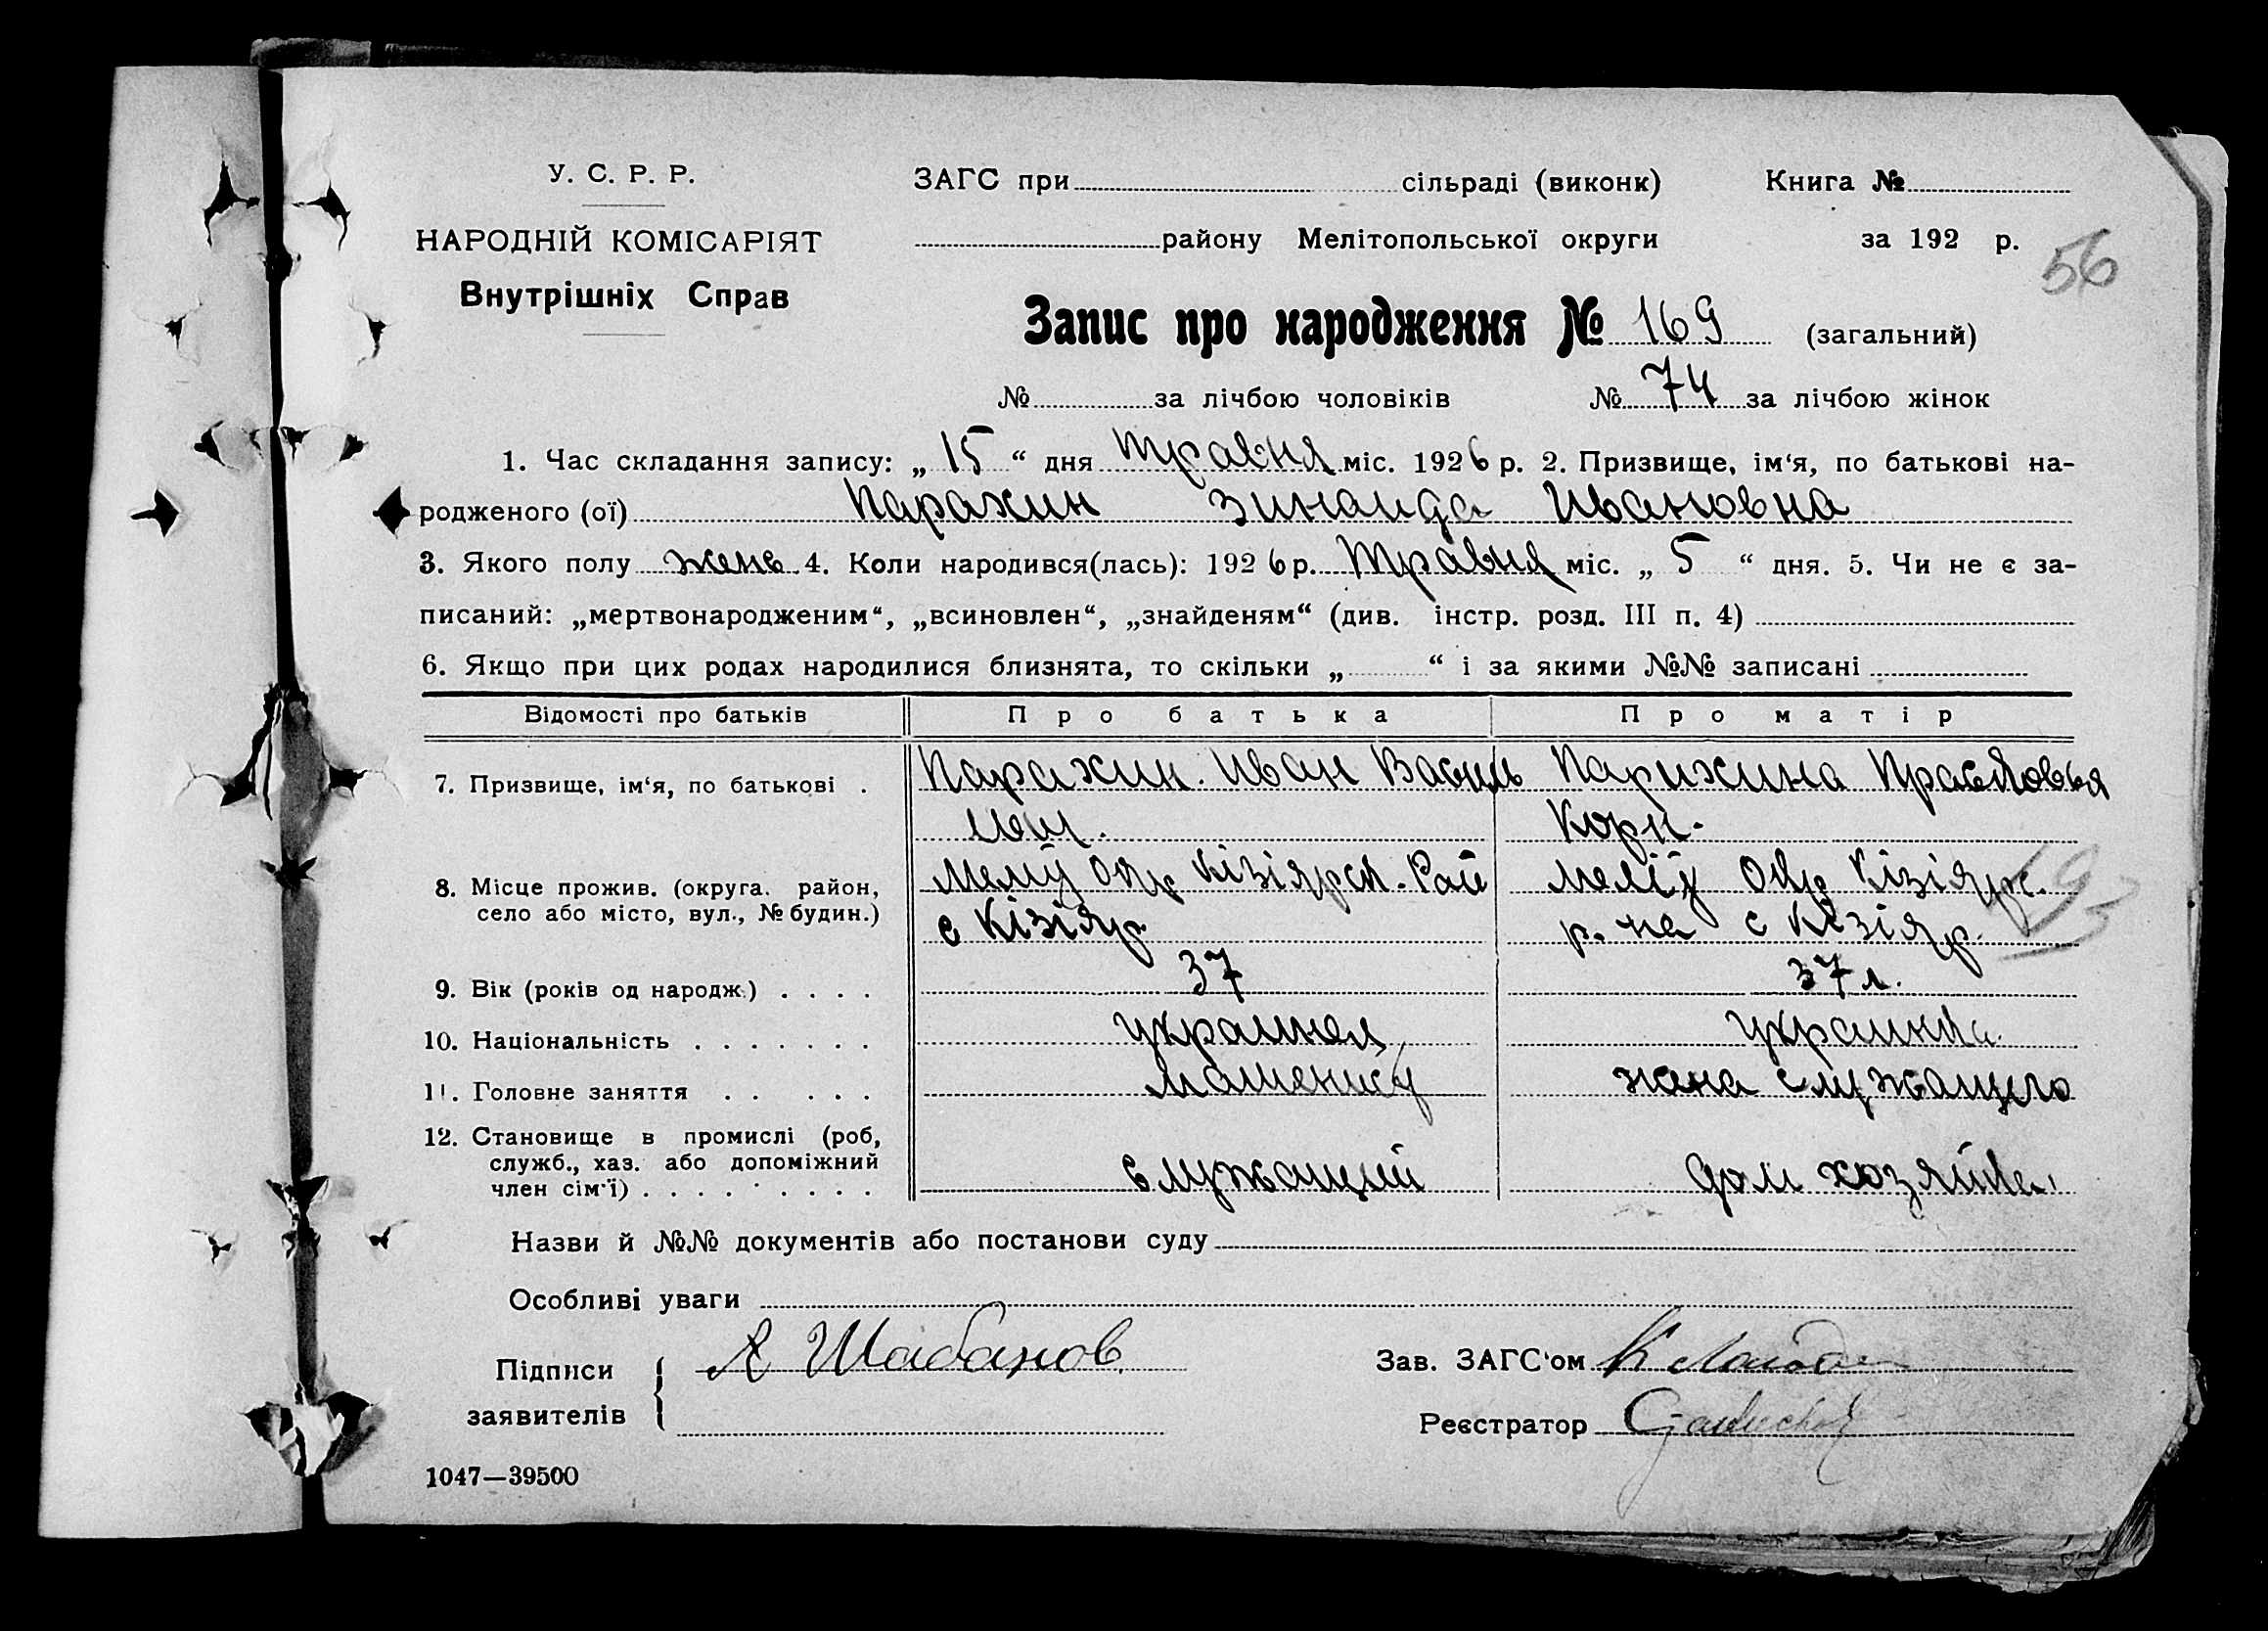 У. С. Р. Р.
НАРОДНІЙ КОМІСАРІЯТ
Внутрішніх Справ
ЗАГС при сільраді (виконк) Книга №
району Мелітопольської округи за 192 р.
56
Запис про народження № 169 (загальний)
№ за лічбою чоловіків № 74 за лічбою жінок
1. Час складання запису: „ 15 “ дня травня міс. 1926 р. 2. Призвище, ім‘я, по батькові на-
родженого (ої) Парахин Зинаида Ивановна
3. Якого полу жен 4. Коли народився(лась): 1926 р. травня міс. „ 5 “ дня. 5. Чи не є за-
писаний: „мертвонародженим“, „всиновлен“, „знайденям“ (див. інстр. розд. III п. 4)
6. Якщо при цих родах народилися близнята, то скільки „ “ і за якими №№ записані
Відомості про батьків Про батька Про матір
7. Призвище, ім‘я, по батькові . Парахин Иван Василь Прасковья
Корн.
8. Місце прожив. (округа. район, Окр Кізіярск. Рай Окр Кізіярс.
село або місто, вул., № будин.) с Кізіяр р-на с Кізіяр
9. Вік (років од народж.) . . . . 37 37 л.
10. Національність . . . . . . . украинец украинка
11. Головне заняття . . . . . жена служащего
12. Становище в промислі (роб,
служб., хаз. або допоміжний
член сім‘ї) . . . . . . . . . служащий дом хозяйка
Назви й №№ документів або постанови суду
Особливі уваги
Підписи
заявителів
А Шабанов
Зав. ЗАГС‘ом
Реєстратор
1047—39500